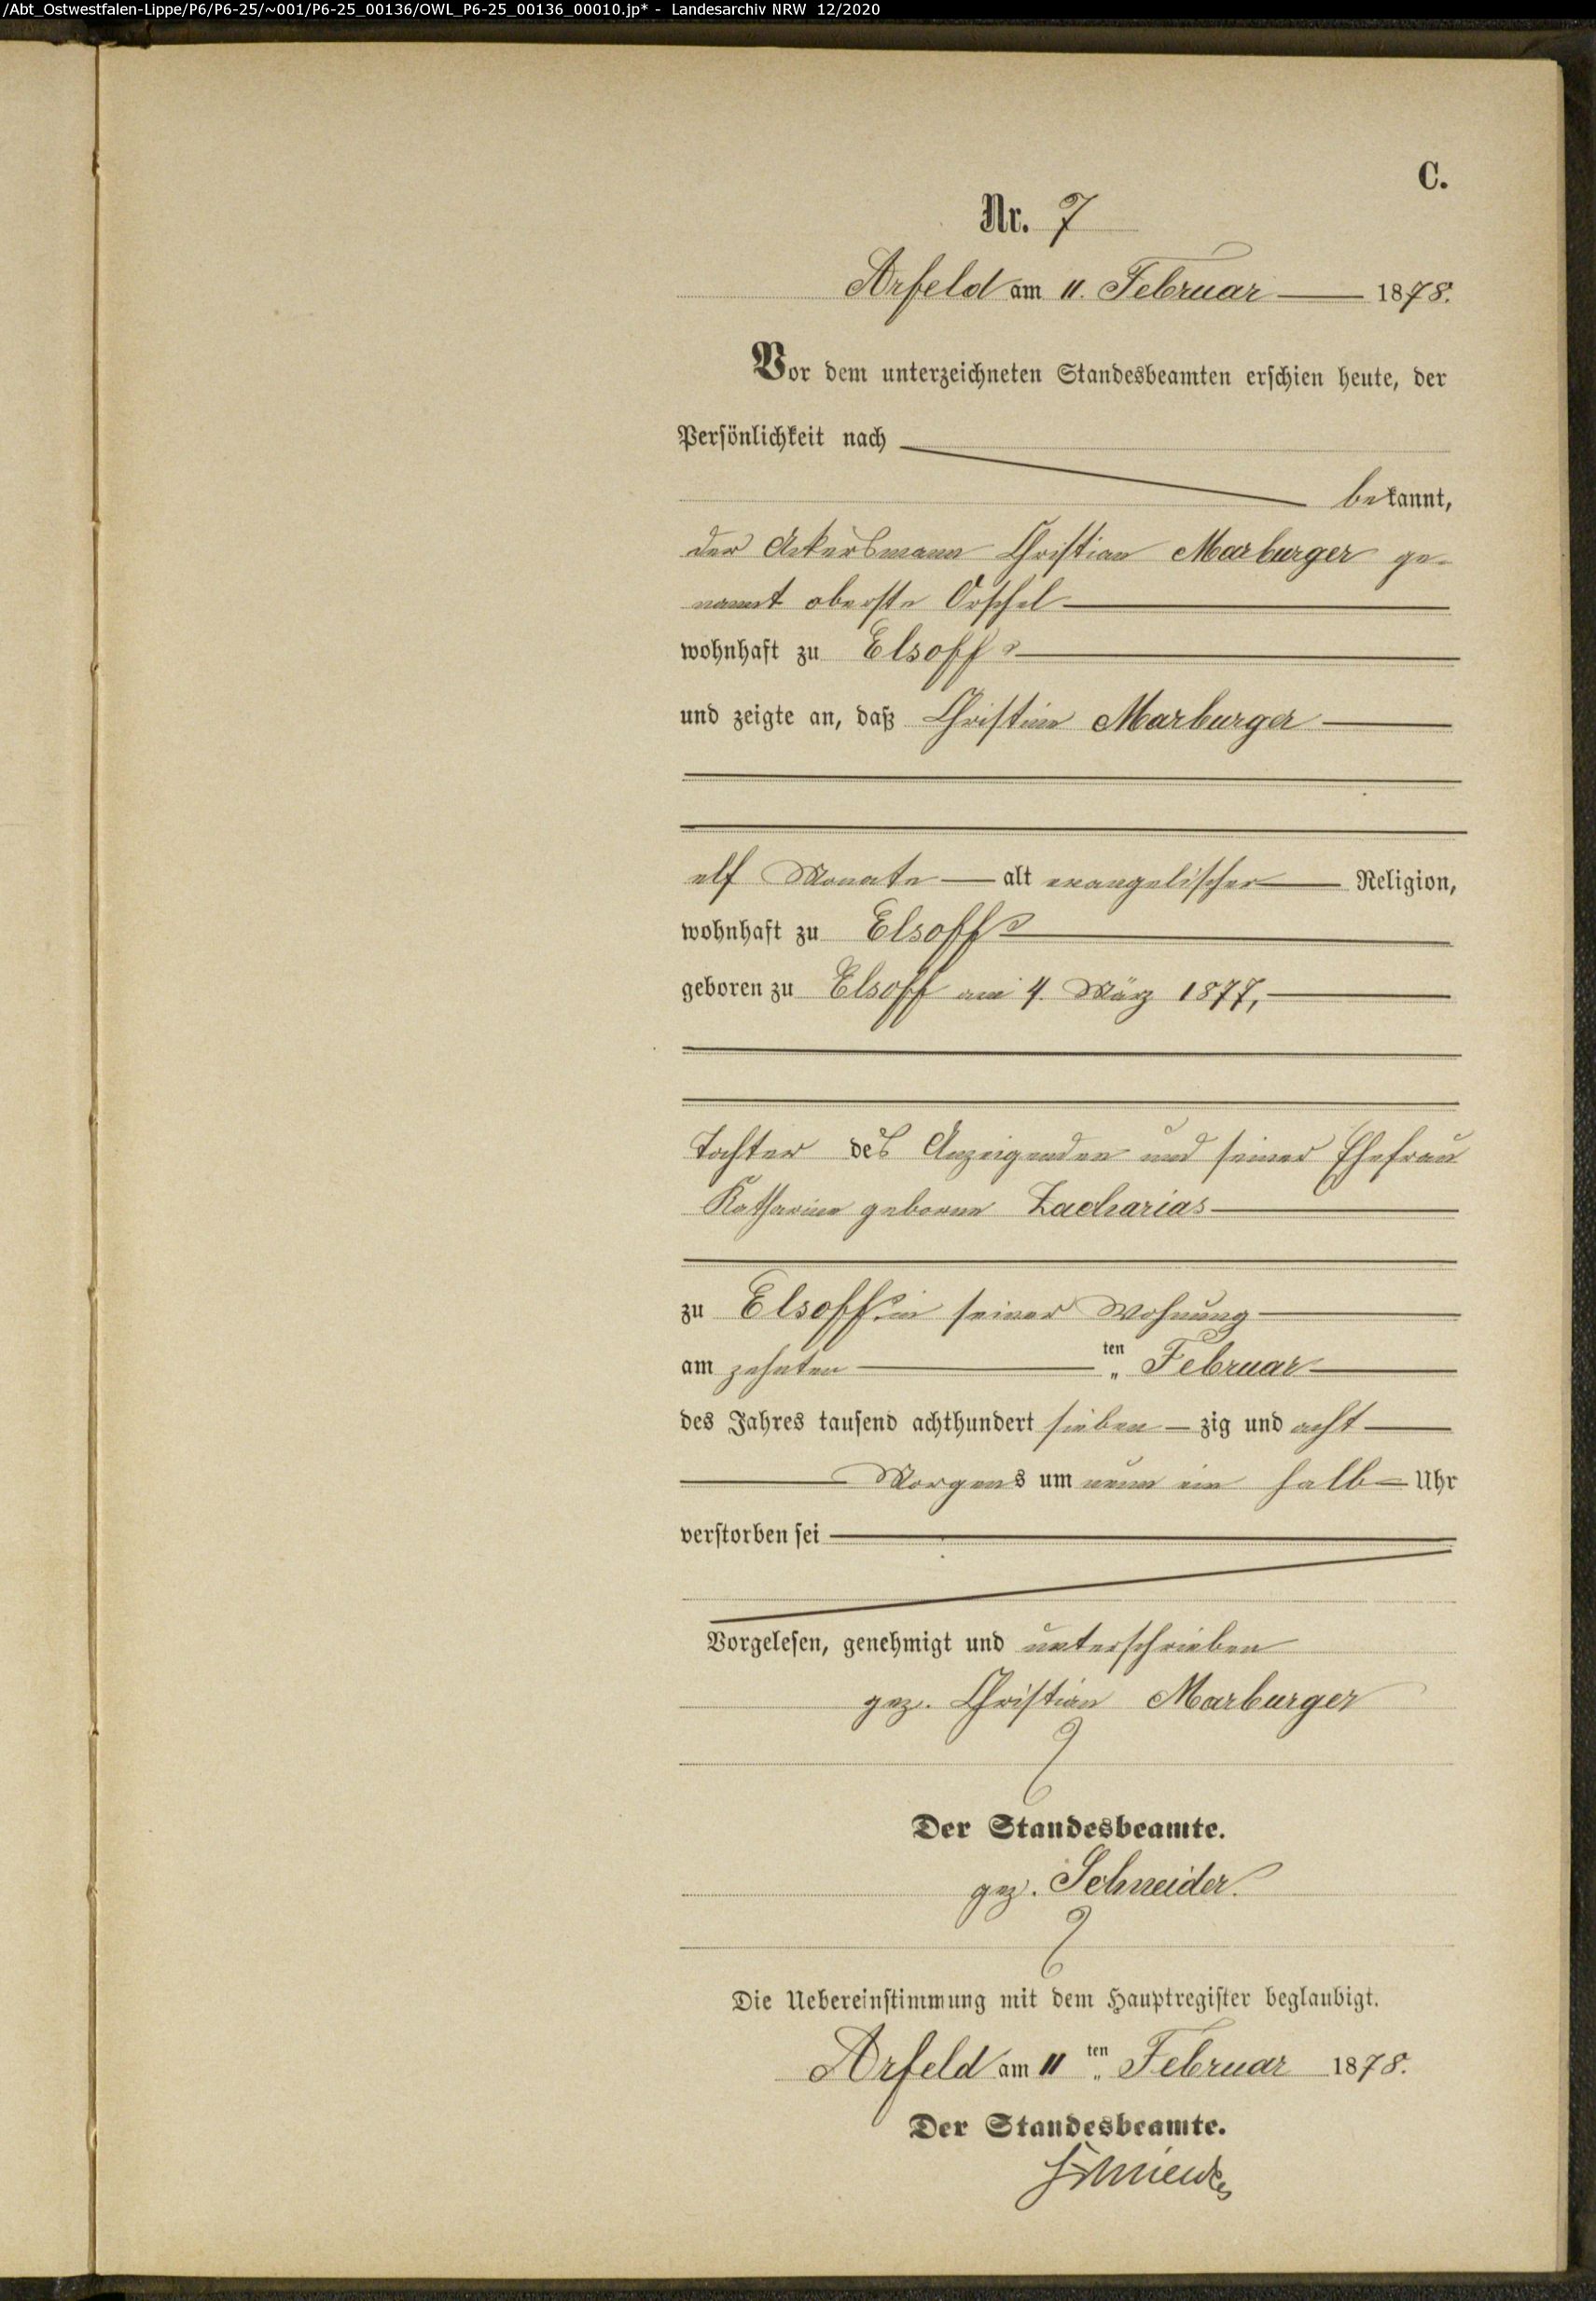 /Abt_Ostwestfalen-Lippe/P6/P6-25/~001/P6-25_00136/OWL_P6-25_00136_00010.jp* - Landesarchiv NRW 12/2020
C.
Nr. 7
Arfeld am 11. Februar 1878.
Vor dem unterzeichneten Standesbeamten erschien heute, der
Persönlichkeit nach
bekannt,
der Ackersmann Christian Marburger ge-
nannt oberste Orschel
wohnhaft zu Elsoff
und zeigte an, daß Christine Marburger
elf Monate alt evangelischer Religion,
wohnhaft zu Elsoff
geboren zu Elsoff am 4. März 1877,
Tochter des Anzeigenden und seiner Ehefrau
Katharine geborne Zacharias
zu Elsoff in seiner Wohnung
am zehnten ten „ Februar
des Jahres tausend achthundert sieben zig und acht
Morgens um neun ein halb Uhr
verstorben sei
Vorgelesen, genehmigt und unterschrieben
gez. Christian Marburger
Der Standesbeamte.
gez. Schneider.
Die Uebereinstimmung mit dem Hauptregister beglaubigt.
Arfeld am 11 ten Februar 1878.
Der Standesbeamte.
Schneider